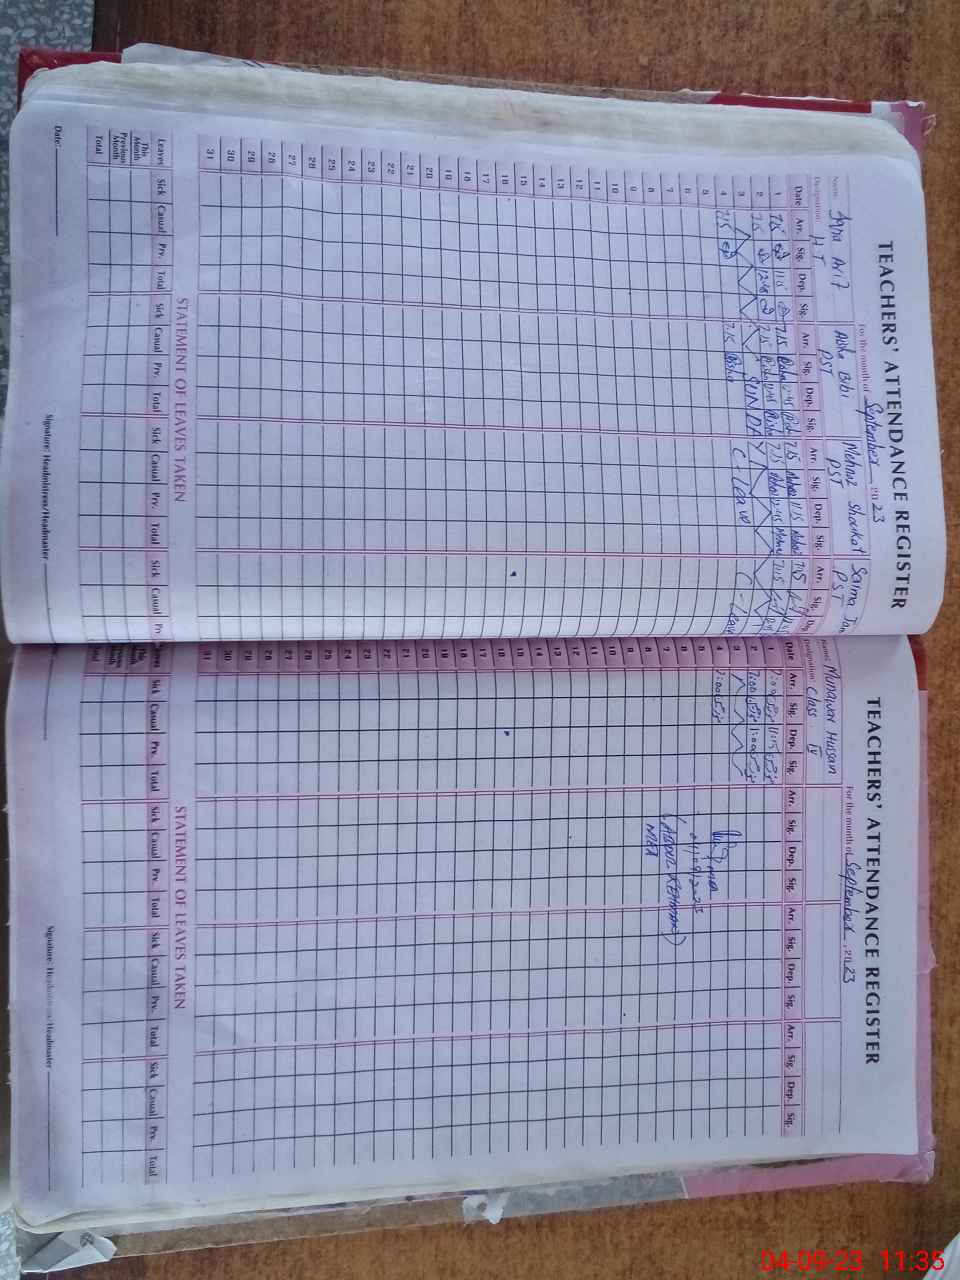 TEACHERS' ATTENDANCE REGISTER
For the month of September 2023
Name: Iqra Arif Aisha Bibi Mehnaz Shoukat Saima Jan
Designation: H T PST PST PST
Date Arr. Sig. Dep. Sig. Arr. Sig. Dep. Sig. Arr. Sig. Dep. Sig. Arr. Sig.
1 7:15 11:15 7:15 7:15 11:15 7:15
2 7:15 12:45 7:15 12:45 7:15 12:45 7:15
3 SUNDAY
4 7:15 7:15 Aisha C - Leave C - Leave
5
6
7
8
9
10
11
12
13
14
15
16
17
18
19
20
21
22
23
24
25
26
27
28
29
30
31
STATEMENT OF LEAVES TAKEN
Leaves Sick Casual Prv. Total Sick Casual Prv. Total Sick Casual Prv. Total Sick Casual
This Month
Previous Month
Total
Date:
Signature: Headmistress/Headmaster
TEACHERS' ATTENDANCE REGISTER
For the month of September, 2023
Name: Munawar Hussain
Designation: Class IV
Date Arr. Sig. Dep. Sig. Arr. Sig. Dep. Sig. Arr. Sig. Dep. Sig. Arr. Sig. Dep. Sig.
1 7:00 11:15
2 7:00 1:00
3
4 7:00 MEA
5 04/09/2023
6
7 (ABDUL REHMAN)
8 MEA
9
10
11
12
13
14
15
16
17
18
19
20
21
22
23
24
25
26
27
28
29
30
31
STATEMENT OF LEAVES TAKEN
Leaves Sick Casual Prv. Total Sick Casual Prv. Total Sick Casual Prv. Total Sick Casual Prv. Total
This Month
Previous Month
Total
Signature: Headmistress/Headmaster
04-09-23 11:35